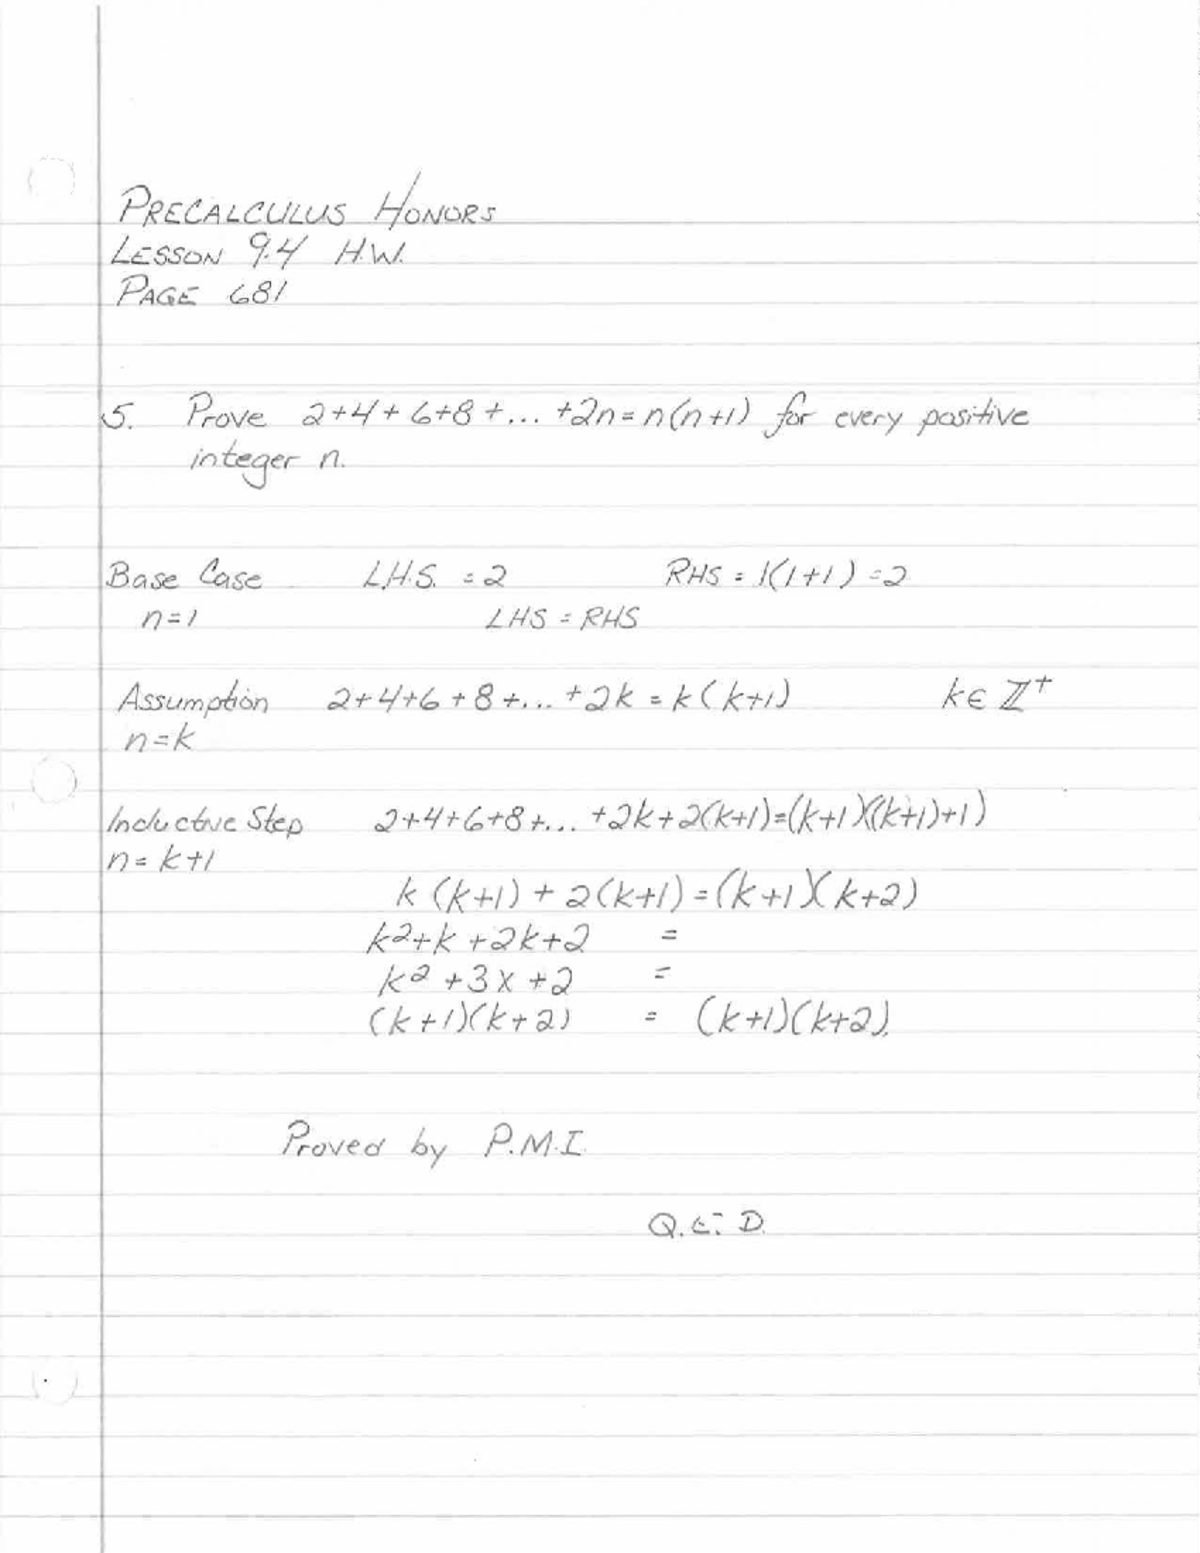 PRECALCULUS HONORS
LESSON 9.4 H.W.
PAGE 681
5. Prove 2+4+6+8+... +2n=n(n+1) for every positive
integer n.
Base Case L.H.S. = 2 RHS = 1(1+1) = 2
n=1 LHS = RHS
Assumption 2+4+6+8+... +2k = k(k+1) k∈ℤ⁺
n=k
Inductive Step 2+4+6+8+... +2k+2(k+1)=(k+1)((k+1)+1)
n= k+1
k(k+1) + 2(k+1) = (k+1)(k+2)
k²+k+2k+2 =
k²+3x+2 =
(k+1)(k+2) = (k+1)(k+2).
Proved by P.M.I.
Q.E.D.